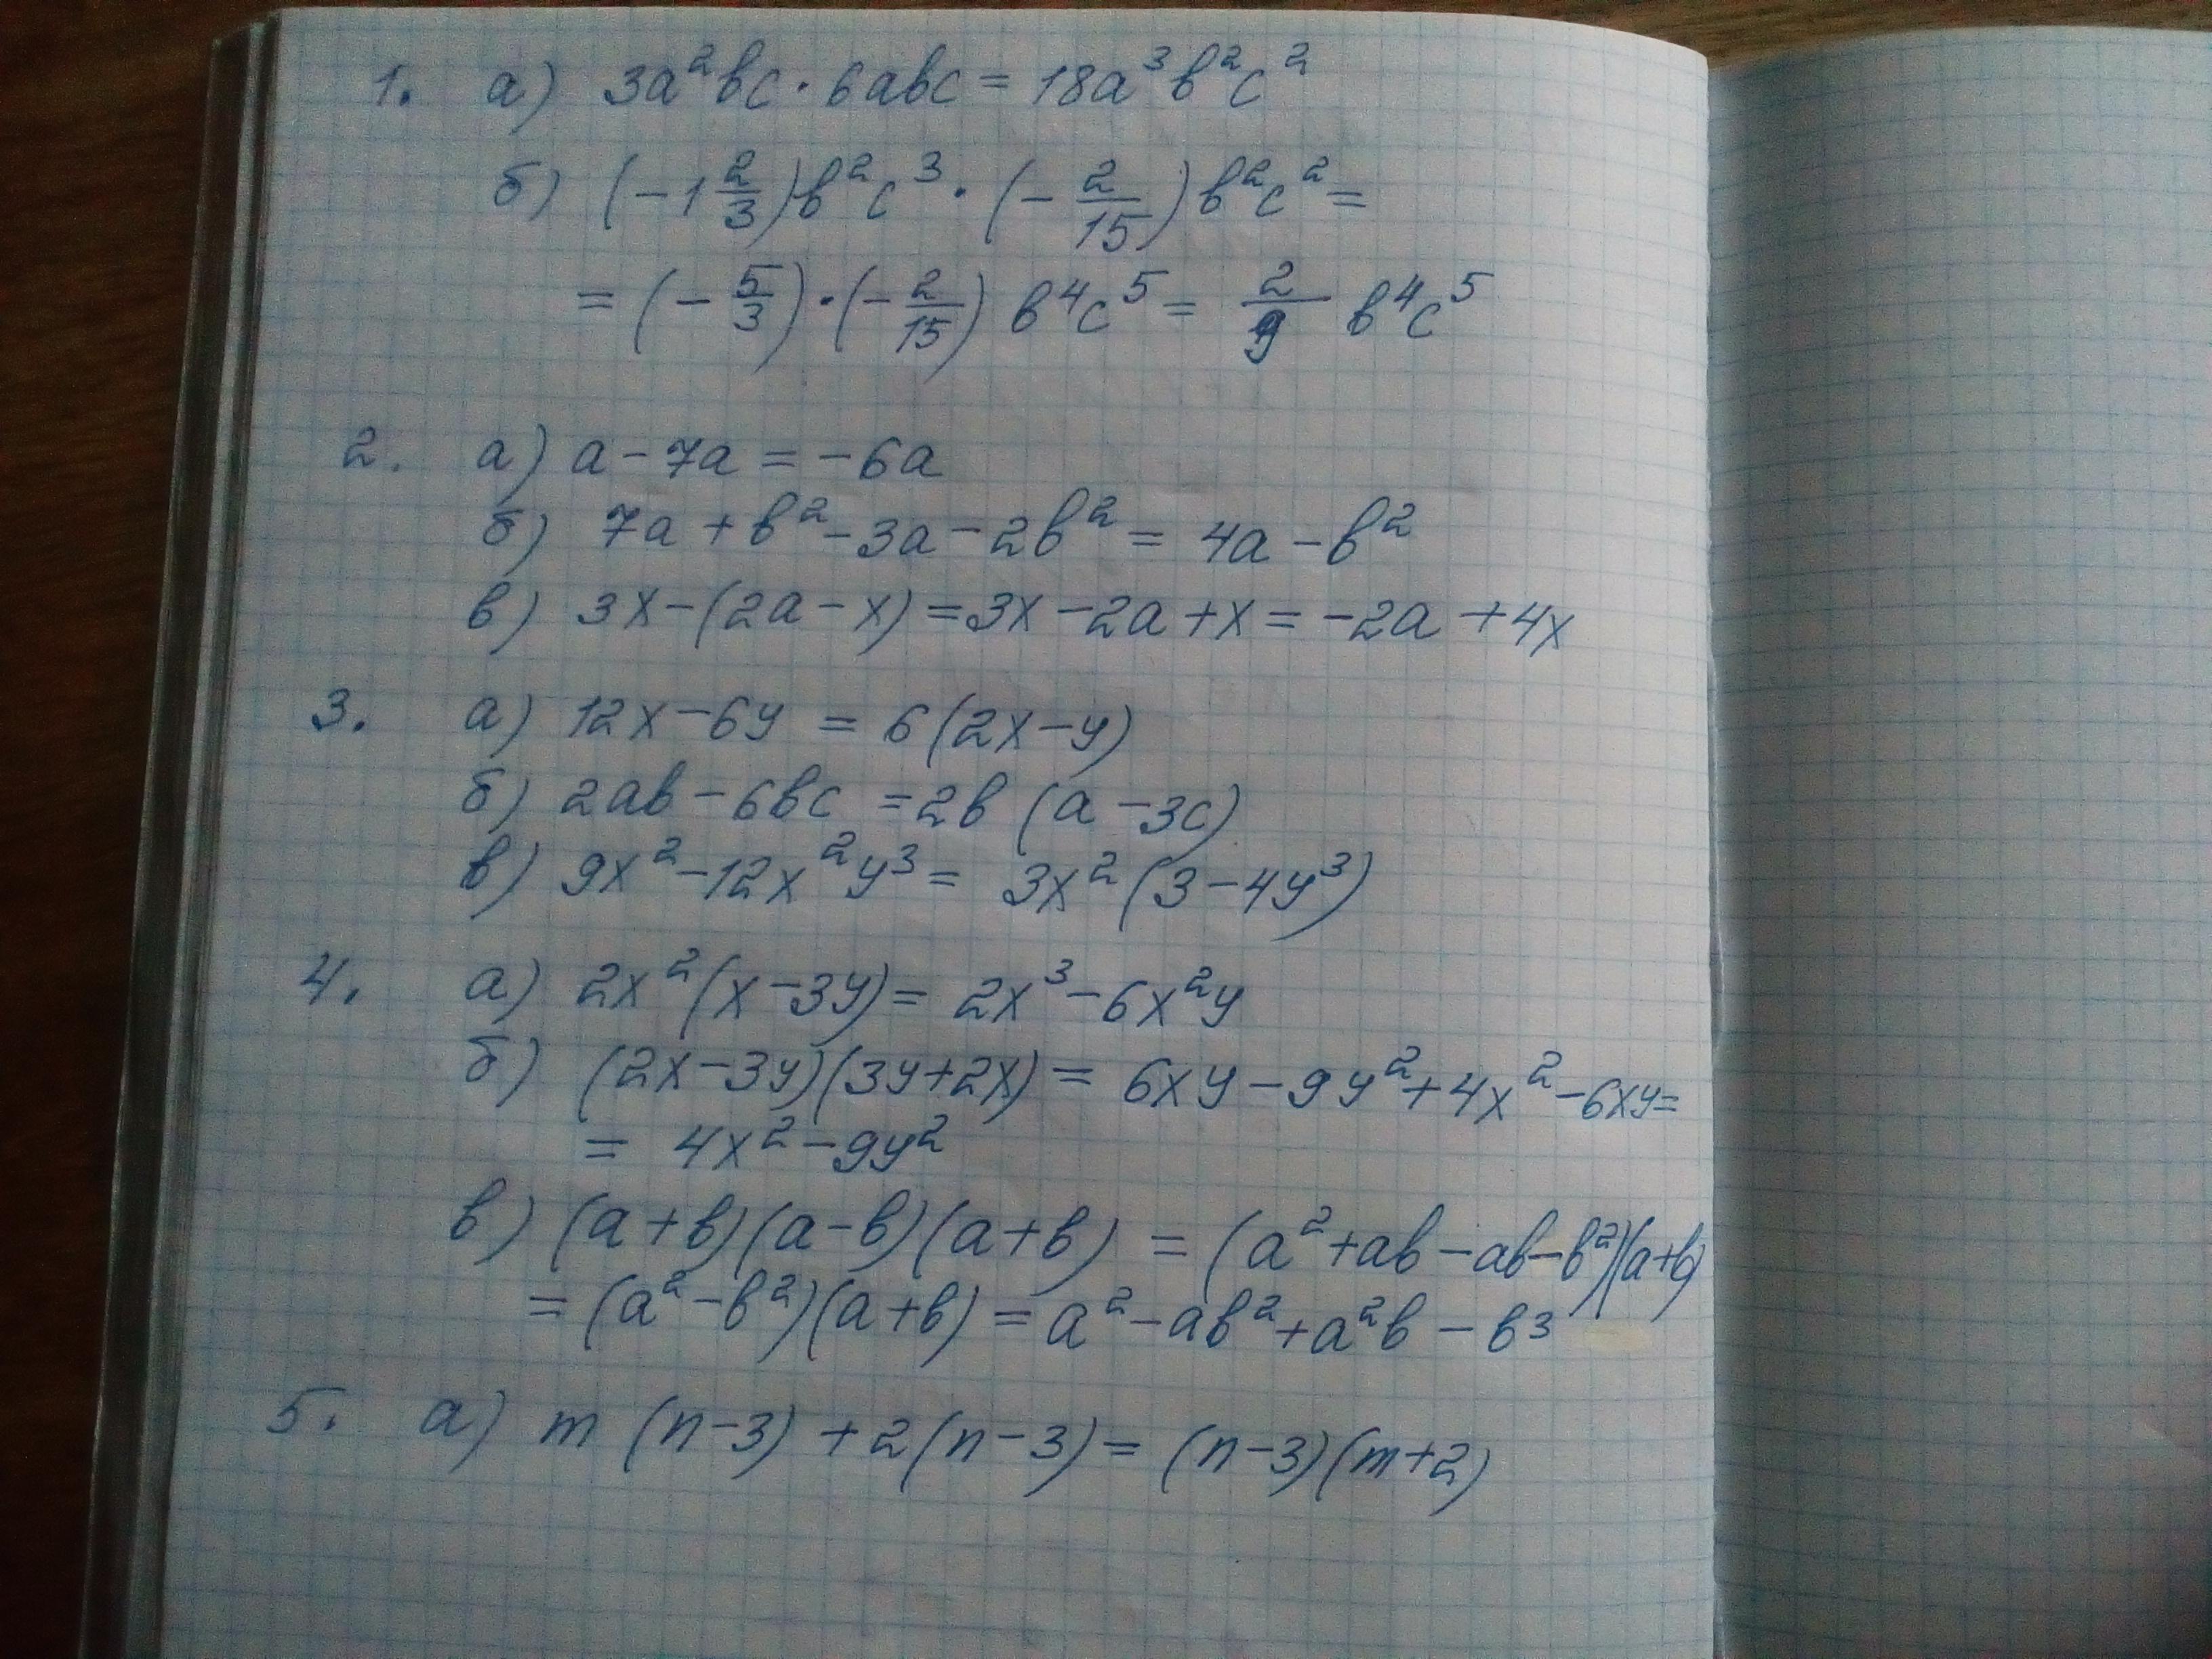 1. а) 3a²bc · 6abc = 18a³b²c²
б) (-1 2/3)b²c³ · (-2/15)b²c² =
= (-5/3) · (-2/15) b⁴c⁵ = 2/9 b⁴c⁵
2. а) a - 7a = -6a
б) 7a + b² - 3a - 2b² = 4a - b²
в) 3x - (2a - x) = 3x - 2a + x = -2a + 4x
3. а) 12x - 6y = 6(2x - y)
б) 2ab - 6bc = 2b (a - 3c)
в) 9x² - 12x²y³ = 3x² (3 - 4y³)
4. а) 2x² (x - 3y) = 2x³ - 6x²y
б) (2x - 3y)(3y + 2x) = 6xy - 9y² + 4x² - 6xy =
= 4x² - 9y²
в) (a + b)(a - b)(a + b) = (a² + ab - ab - b²)(a + b)
= (a² - b²)(a + b) = a² - ab² + a²b - b³
5. а) m (n - 3) + 2(n - 3) = (n - 3)(m + 2)